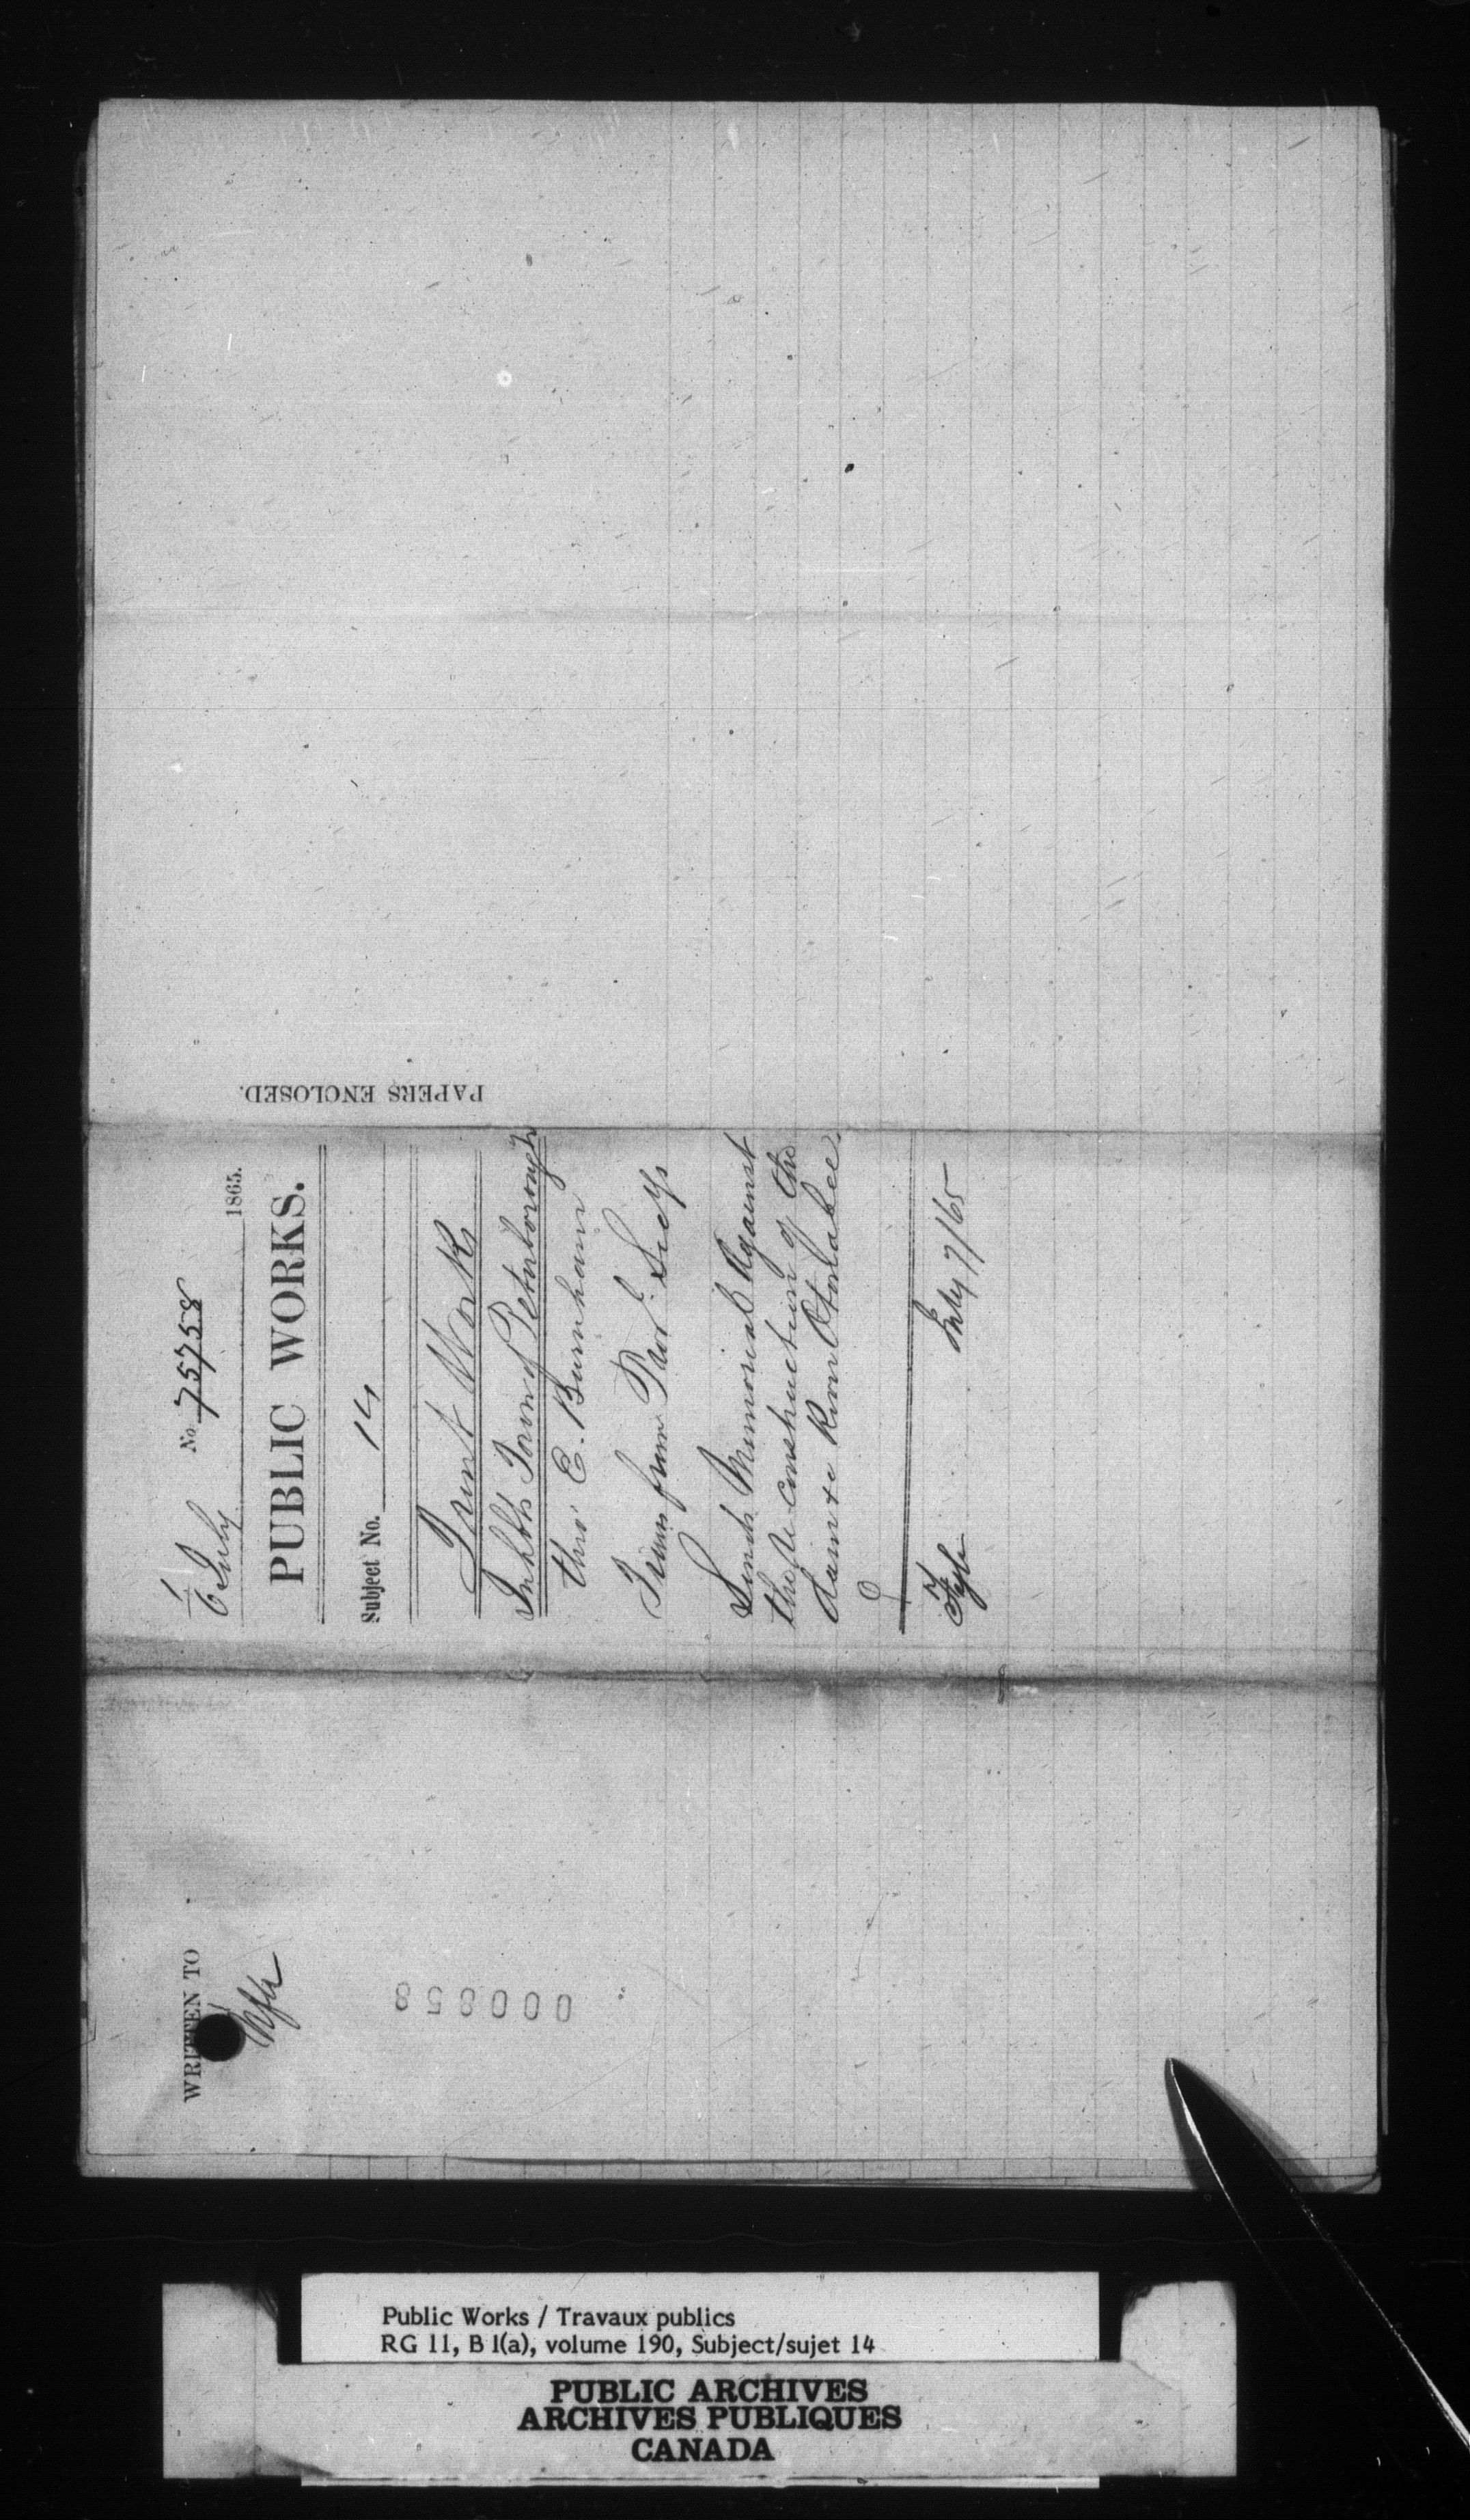 No. 75758
6 July 1865.
PUBLIC WORKS.
Subject No. 14
Trent Works
Inhbts Town of Peterborough
thro' E. Burnham
Trans from Prov. Secy's
Sends Memorial Against
the Re construction of the
dam +c River Otonabee.
Fyle July 7/65
PAPERS ENCLOSED.
WRITTEN TO
000858
Public Works / Travaux publics
RG 11, B 1(a), volume 190, Subject/sujet 14
PUBLIC ARCHIVES
ARCHIVES PUBLIQUES
CANADA